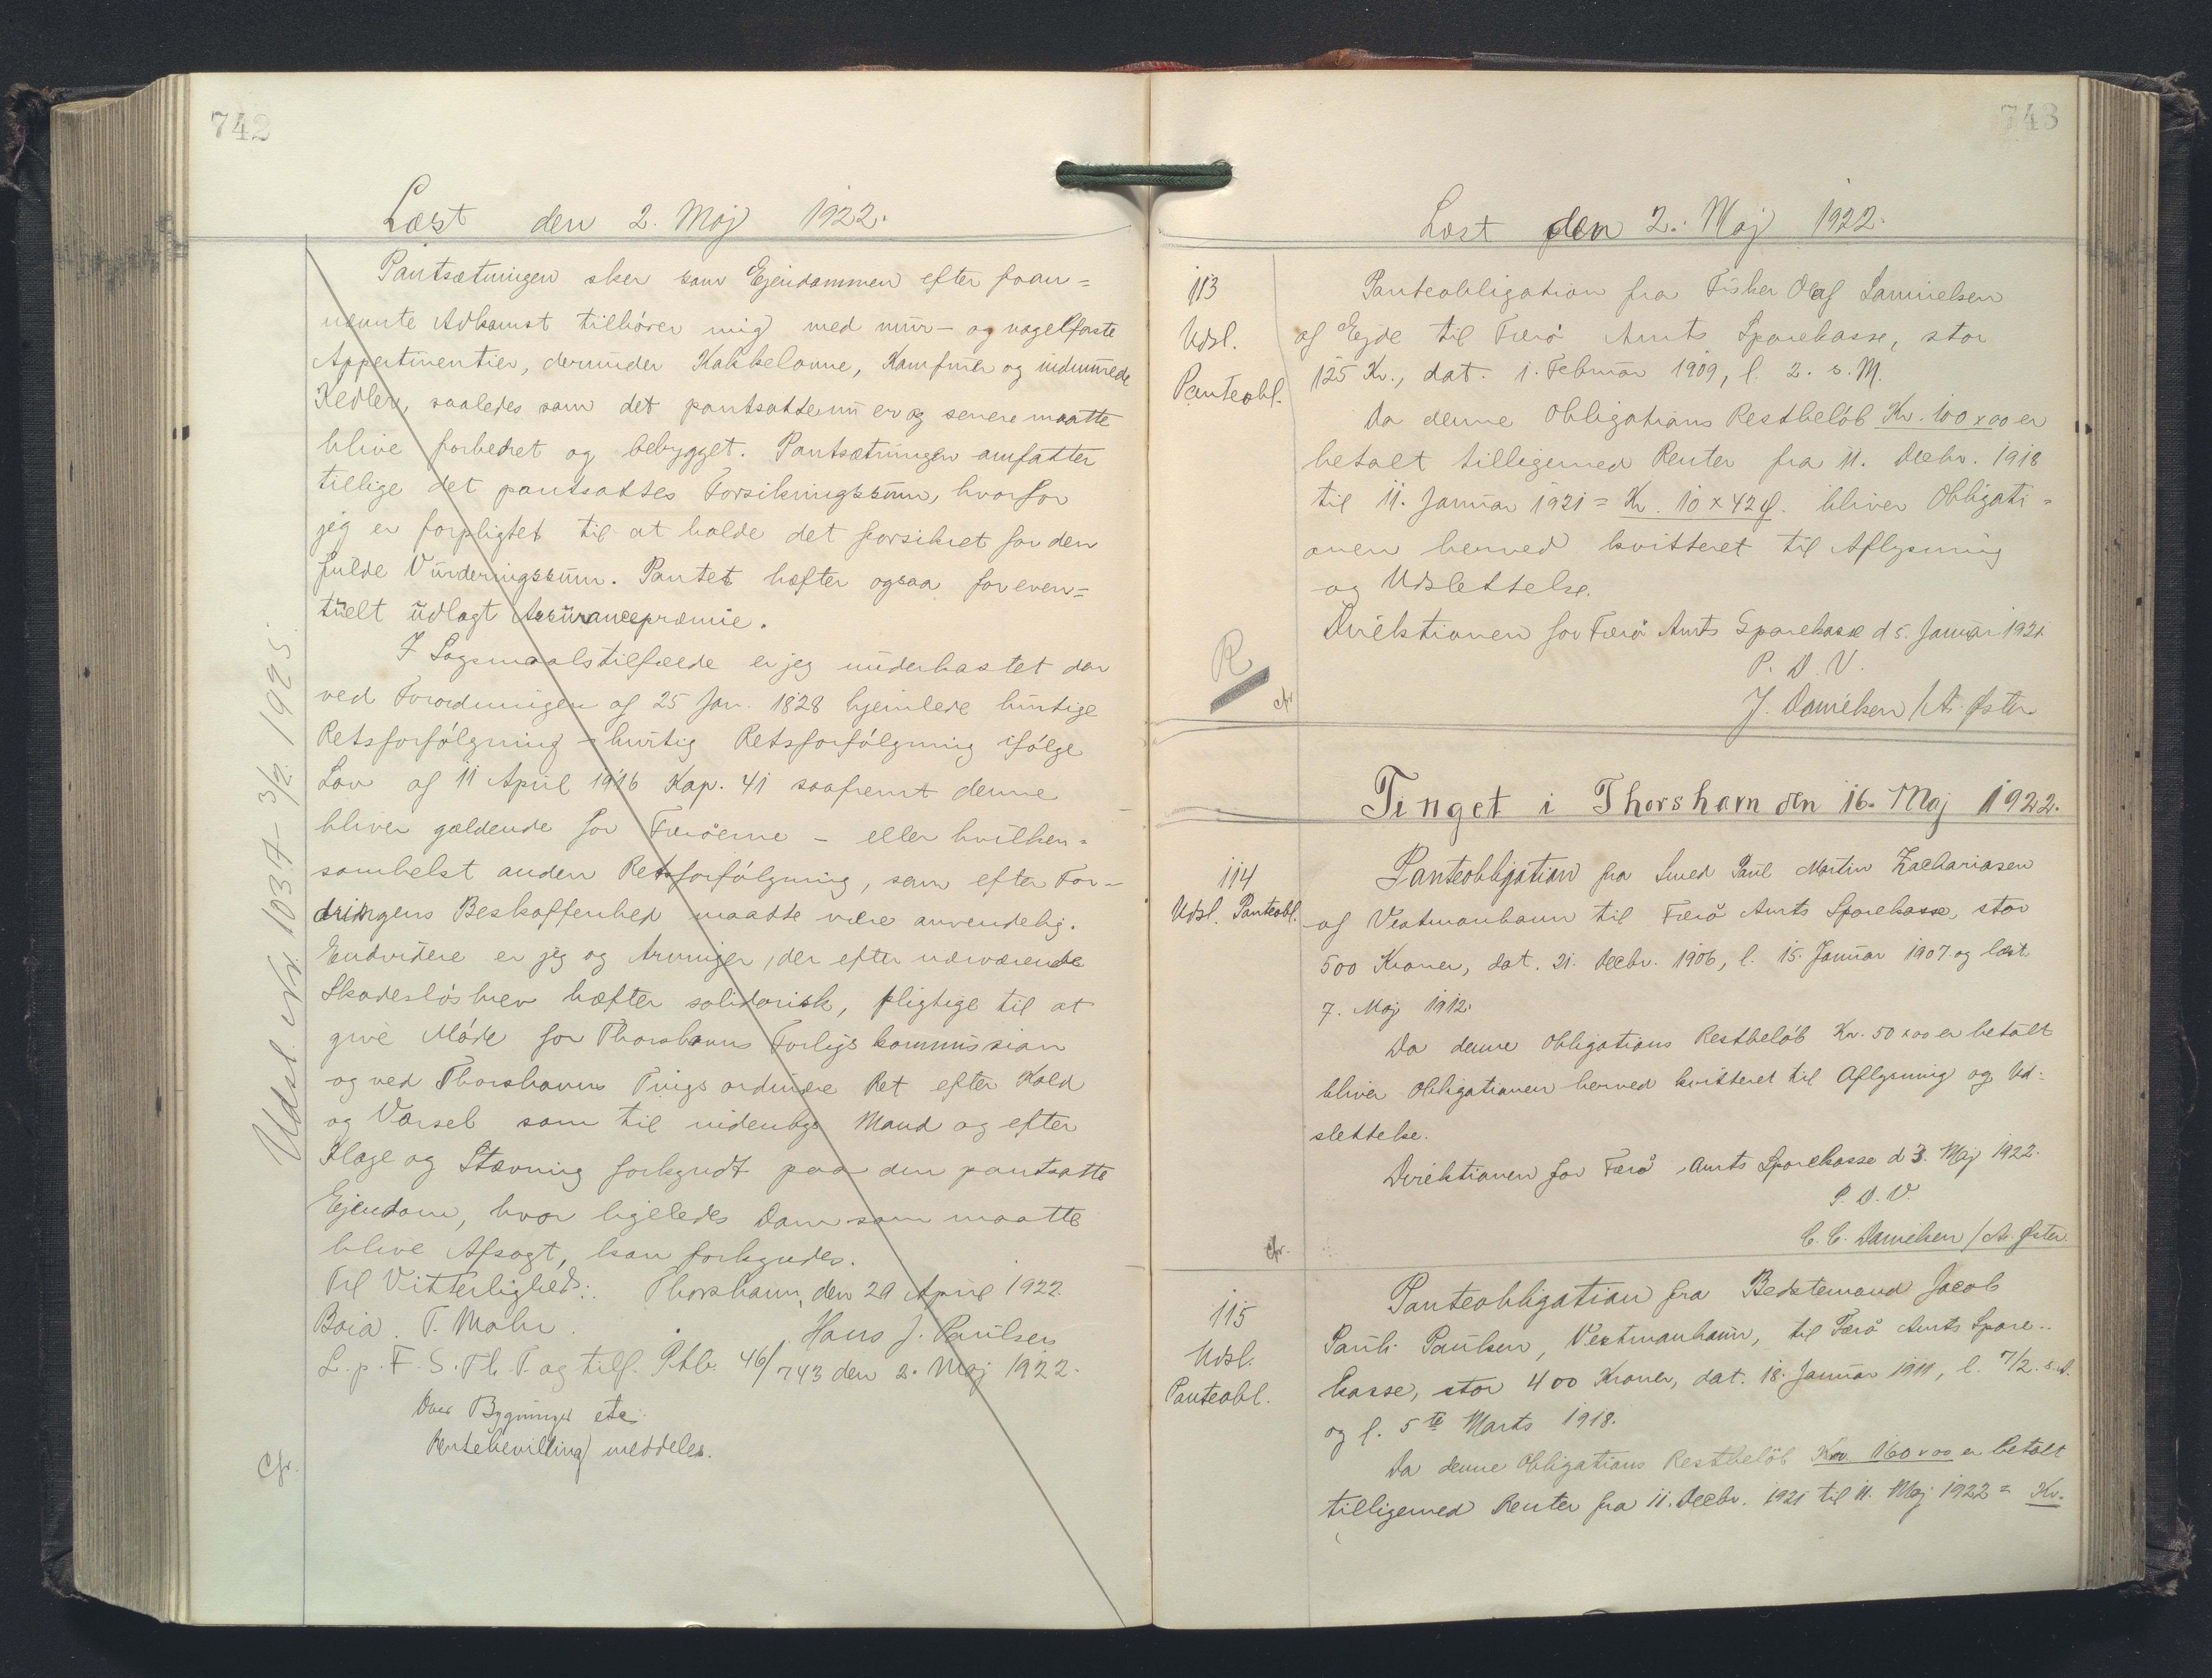 742
Læst den 2. Maj 1922.
Pantsætningen sker som Ejendommen efter foran=
nævnte Adkomst tilhører mig med mur- og nagelfaste
Appertinentier, derunder Kakkelovne, Komfurer og indmurede
Kedler, saaledes som det pantsatte nu er og senere maatte
blive forbedret og bebygget. Pantsætningen omfatter
tillige det pantsattes Forsikringssum, hvorfor
jeg er forpligtet til at holde det forsikret for den
fulde Vurderingssum. Pantet hæfter ogsaa for even=
tuelt udlagt Assurancepræmie.
I Søgsmaalstilfælde er jeg underkastet den
ved Forordningen af 25 Jan. 1828 hjemlede hurtige
Retsforfølgning - hurtig Retsforfølgning ifølge
Lov af 11 April 1916 Kap. 41 saafremt denne
bliver gældende for Færøerne - eller hvilken=
somhelst anden Retsforfølgning, som efter For-
dringens Beskaffenhed maatte være anvendelig.
Endvidere er jeg og Arvinger, der efter nærværende
Skadesløsbrev hæfter solidarisk, pligtige til at
give Møde for Thorshavns Forligskommission
og ved Thorshavns Tings ordinære Ret efter Kald
og Varsel som til indenbys Mand og efter
Klage og Stævning forkyndt paa den pantsatte
Ejendom, hvor ligeledes Dom som maatte
blive Afsagt, kan forkyndes.
Til Vitterlighed: Thorshavn, den 29 April 1922.
Boia. T. Mohr. Hans J. Paulsen
L. p. F. S. Th. T. og tilf. Ptb. 46/743 den 2. Maj 1922.
Over Bygninger etc.
Rentebevilling meddeles.
Cfr.
Udsl. Nr. 1037 - 3/2 1925.
743
Læst den 2. Maj 1922.
113
Udsl.
Panteobl.
Panteobligation fra Fisker Olaf Samuelsen
af Ejde til Færø Amts Sparekasse, stor
125 Kr., dat. 1. Februar 1909, l. 2. s. M.
Da denne Obligations Restbeløb Kr. 100 x 00 er
betalt tilligemed Renter fra 11. Decbr. 1918
til 11. Januar 1921 = Kr. 10 x 42 Ø. bliver Obligati=
onen herved kvitteret til Aflysning
og Udslettelse.
Direktionen for Færø Amts Sparekasse d 5. Januar 1921
P. D. V.
J. Danielsen / A. Øster.
R
cfr
Tinget i Thorshavn den 16. Maj 1922.
114
Udsl. Panteobl.
Panteobligation fra Smed Paul Martin Zachariasen
af Vestmanhavn til Færø Amts Sparekasse, stor
500 Kroner, dat. 21. Decbr. 1906, l. 15. Januar 1907 og læst
7. Maj 1912.
Da denne Obligations Restbeløb Kr. 50 x 00 er betalt
bliver Obligationen herved kvitteret til Aflysning og Ud=
slettelse.
Direktionen for Færø Amts Sparekasse d 3. Maj 1922.
P. D. V.
C. C. Danielsen / A. Øster.
cfr.
115
Udsl.
Panteobl.
Panteobligation fra Bedstemand Jacob
Pauli Paulsen, Vestmanhavn, til Færø Amts Spare-
kasse, stor 400 Kroner, dat. 18. Januar 1911, l. 7/2. s. A.
og l. 5te Marts 1918.
Da denne Obligations Restbeløb Kr. 160 x 00 er betalt
tilligemed Renter fra 11. Decbr. 1921 til 11. Maj 1922 = Kr.